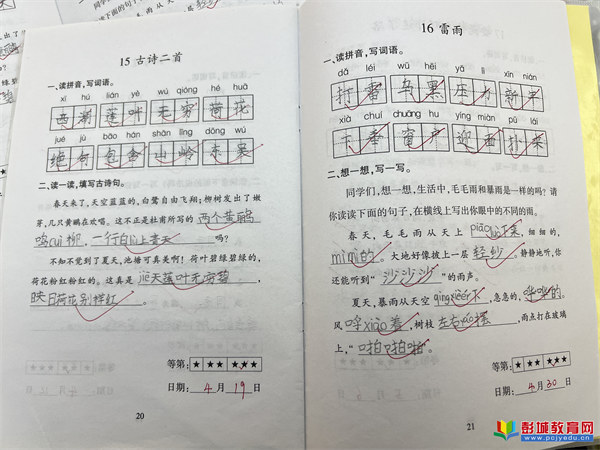 15 古诗二首
一、读拼音,写词语。
xī hú lián yè wú qióng hé huā
西湖 莲叶 无穷 荷花
jué jù bāo hán shān lǐng dōng wú
绝句 包含 山岭 东吴
二、读一读,填写古诗句。
春天来了,天空蓝蓝的,白鹭自由飞翔;柳树发出了嫩
芽,几只黄鹂在欢唱。这不正是杜甫所写的 两个黄鹂
鸣cuì柳,一行白 上青天 吗?
不知不觉到了夏天,池塘可真美啊!荷叶碧绿碧绿的,
荷花粉红粉红的。这真是 天莲叶无穷碧,
映日荷花别样红 。
等第: ★ ★★ ★★★
日期: 4 月 19 日
20
16 雷雨
一、读拼音,写词语。
dǎ léi wū hēi yā lì xīn nián
打雷 乌黑 压力 新年
xià chuí chuāng hu yíng miàn pū lái
下垂 窗户 迎面 扑来
二、想一想,写一写。
同学们,想一想,生活中,毛毛雨和暴雨是一样的吗?请
你读读下面的句子,在横线上写出你眼中的不同的雨。
春天,毛毛雨从天上 piāo 下来,细细的,
mìmì的 。大地好像披上一层 轻纱 。静静地听,你
还能听到“ 沙沙沙 ”的雨声。
夏天,暴雨从天空 下,急急的,
风 呼xiào着 ,树枝 左右 摆 ,雨点打在玻璃
上,“ 啪啪啪 ”。
等第: ★ ★★ ★★★
日期: 4 月 30 日
21
彭城教育网
www.pcjyedu.cn